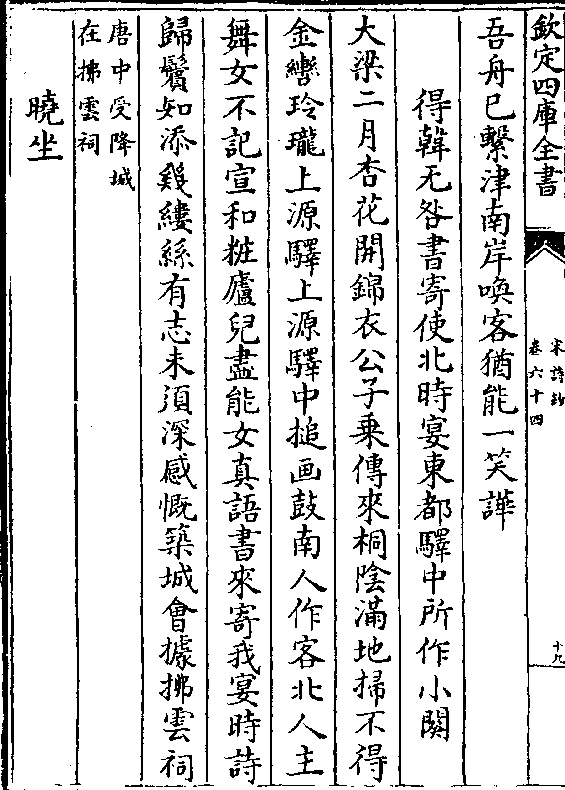 欽定四庫全書
宋詩鈔
卷六十四
十九
吾舟已繫津南岸喚客猶能一笑譁
得韓无咎書寄使北時宴東都驛中所作小闋
大梁二月杏花開錦衣公子乗傳來桐陰滿地掃不得
金轡玲瓏上源驛上源驛中搥画鼓南人作客北人主
舞女不記宣和粧廬兒盡能女真語書來寄我宴時詩
歸鬢知添幾縷絲有志未須深感慨築城會據拂雲祠
唐中受降城
在拂雲祠
曉坐